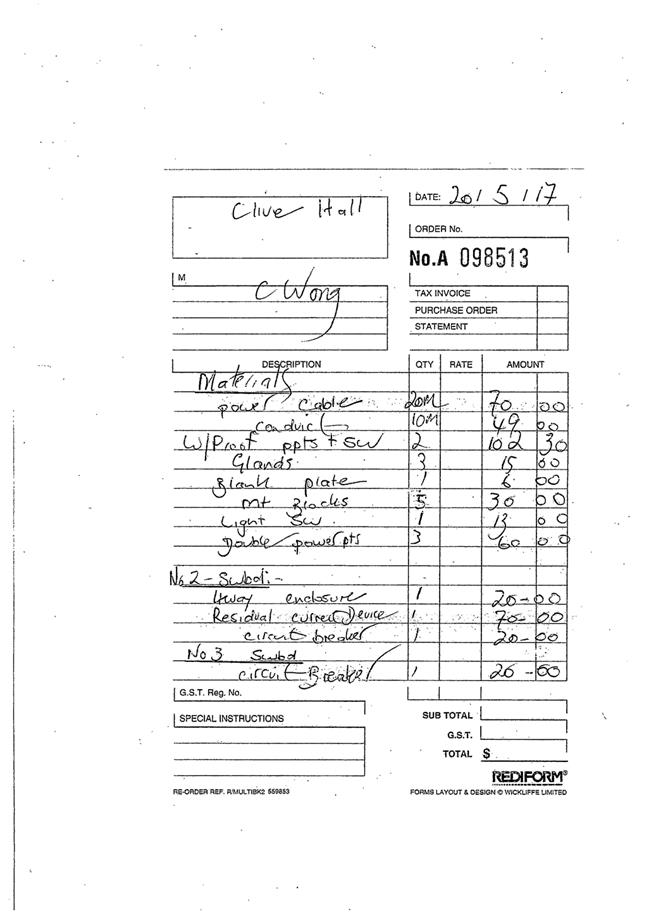 Clive Hall
DATE: 20/5/17
ORDER No.
No.A 098513
M
C Wong
TAX INVOICE
PURCHASE ORDER
STATEMENT
DESCRIPTION QTY RATE AMOUNT
Materials
power cable 20M 70 00
conduit 10M 49 00
W/Proof ppts + SW 2 102 30
Glands 3 15 00
Blank plate 1 6 00
Mt Blocks 5 30 00
Light SW 1 13 00
Double power pts 3 60 00
No 2 - Subdi -
4way enclosure 1 20-00
Residual current Device 1 70-00
circuit breaker 1 20-00
No 3 Subd
circuit Breaker 1 20-00
G.S.T. Reg. No.
SPECIAL INSTRUCTIONS
SUB TOTAL
G.S.T.
TOTAL $
REDIFORM®
RE-ORDER REF. R/MULTIBK2 559853
FORMS LAYOUT & DESIGN © WICKLIFFE LIMITED